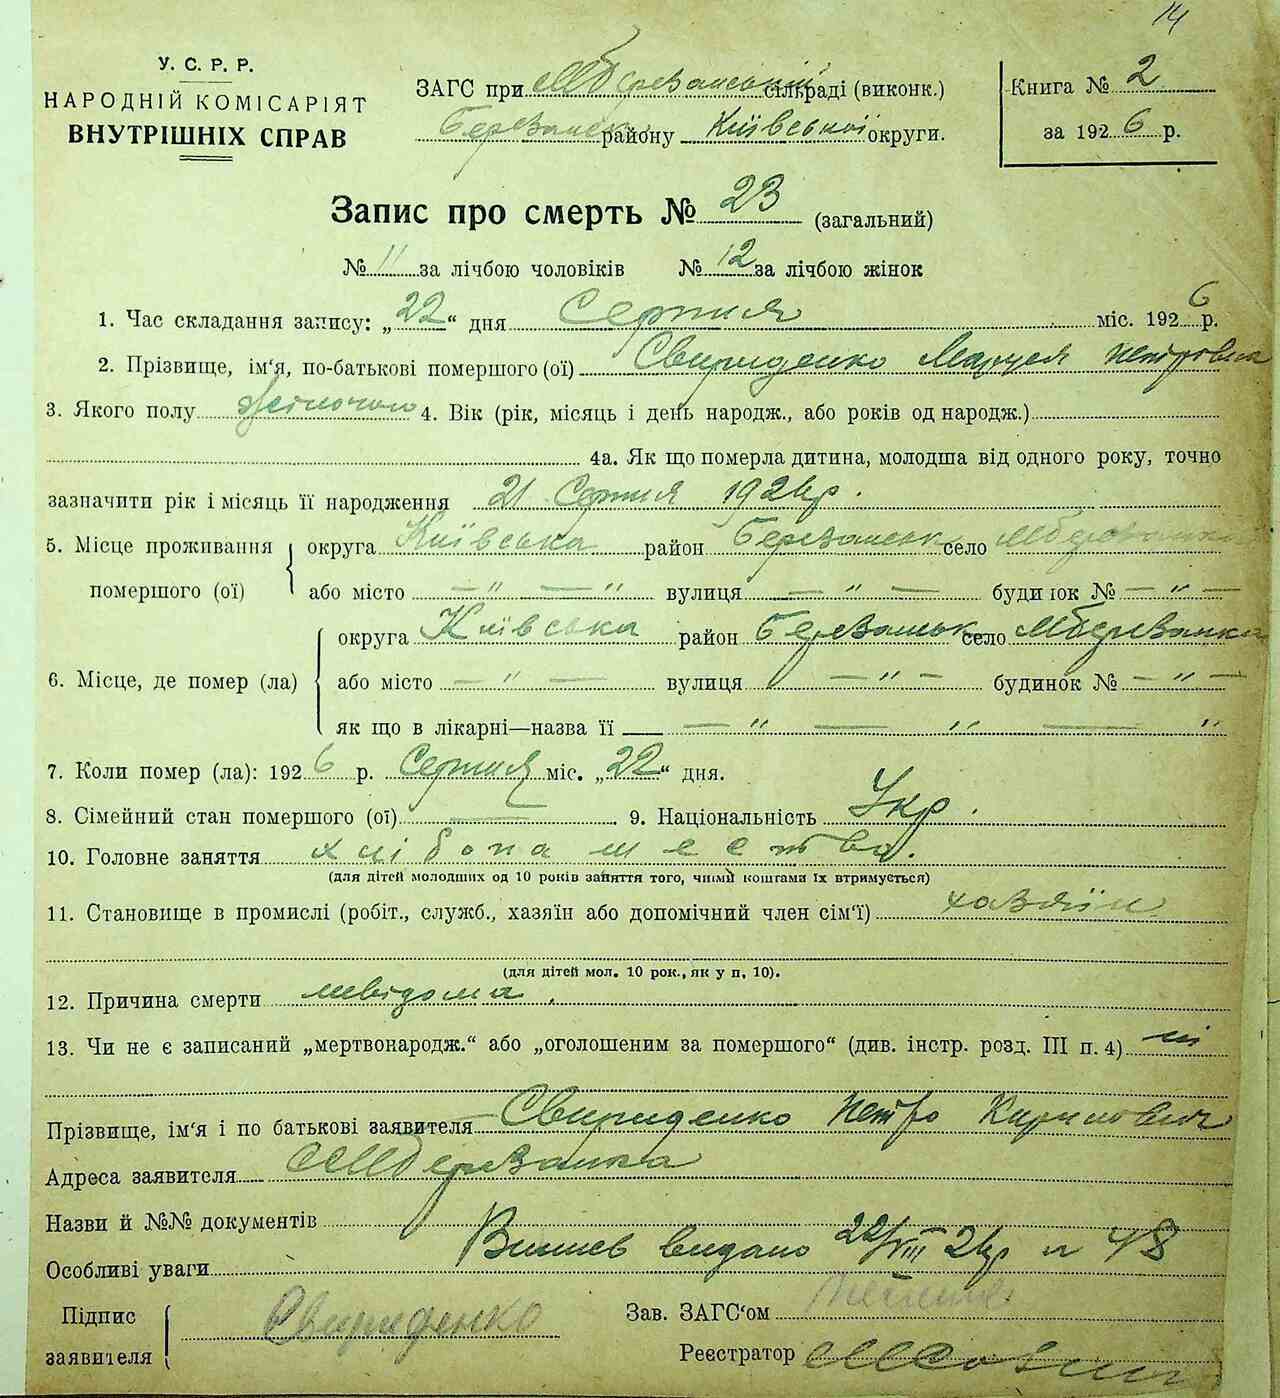 14
У. С. Р. Р.
НАРОДНІЙ КОМІСАРІЯТ
ВНУТРІШНІХ СПРАВ
ЗАГС при МБерезанській сільраді (виконк.)
Березанськ району Київської округи.
Книга № 2
за 1926 р.
Запис про смерть № 23 (загальний)
№ 11 за лічбою чоловіків № 12 за лічбою жінок
1. Час складання запису: „22“ дня Серпня міс. 1926 р.
2. Прізвище, ім‘я, по-батькові помершого (ої) Свириденко Маруся Петровна
3. Якого полу жіночою 4. Вік (рік, місяць і день народж., або років од народж.)
4а. Як що померла дитина, молодша від одного року, точно
зазначити рік і місяць її народження 21 Серпня 1926р.
5. Місце проживання округа Київська район Березанськ село МБерезанка
помершого (ої) або місто — " — " вулиця — " — будинок № — " —
округа Київська район Березанськ село МБерезанка
6. Місце, де помер (ла) або місто — " — вулиця — " — будинок № — " —
як що в лікарні—назва її — " — " — "
7. Коли помер (ла): 1926 р. Серпня міс. „22“ дня.
8. Сімейний стан помершого (ої) — 9. Національність Укр.
10. Головне заняття хліборпашество.
(для дітей молодших од 10 років заняття того, чиїми коштами їх втримується)
11. Становище в промислі (робіт., служб., хазяїн або допомічний член сім‘ї) хазяїн
(для дітей мол. 10 рок., як у п, 10).
12. Причина смерти невідома.
13. Чи не є записаний „мертвонародж.“ або „оголошеним за помершого“ (див. інстр. розд. III п. 4) ні
Прізвище, ім‘я і по батькові заявителя Свириденко Петро Кирилович
Адреса заявителя МБерезанка
Назви й №№ документів
Особливі уваги Випись видано 22/VIII 26р н 48
Підпис заявителя Свириденко
Зав. ЗАГС‘ом
Реєстратор